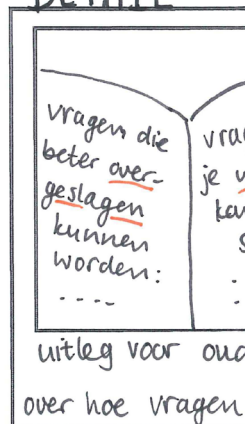 vragen die
beter over-
geslagen
kunnen
worden:
....
je
uitleg voor
over hoe vragen